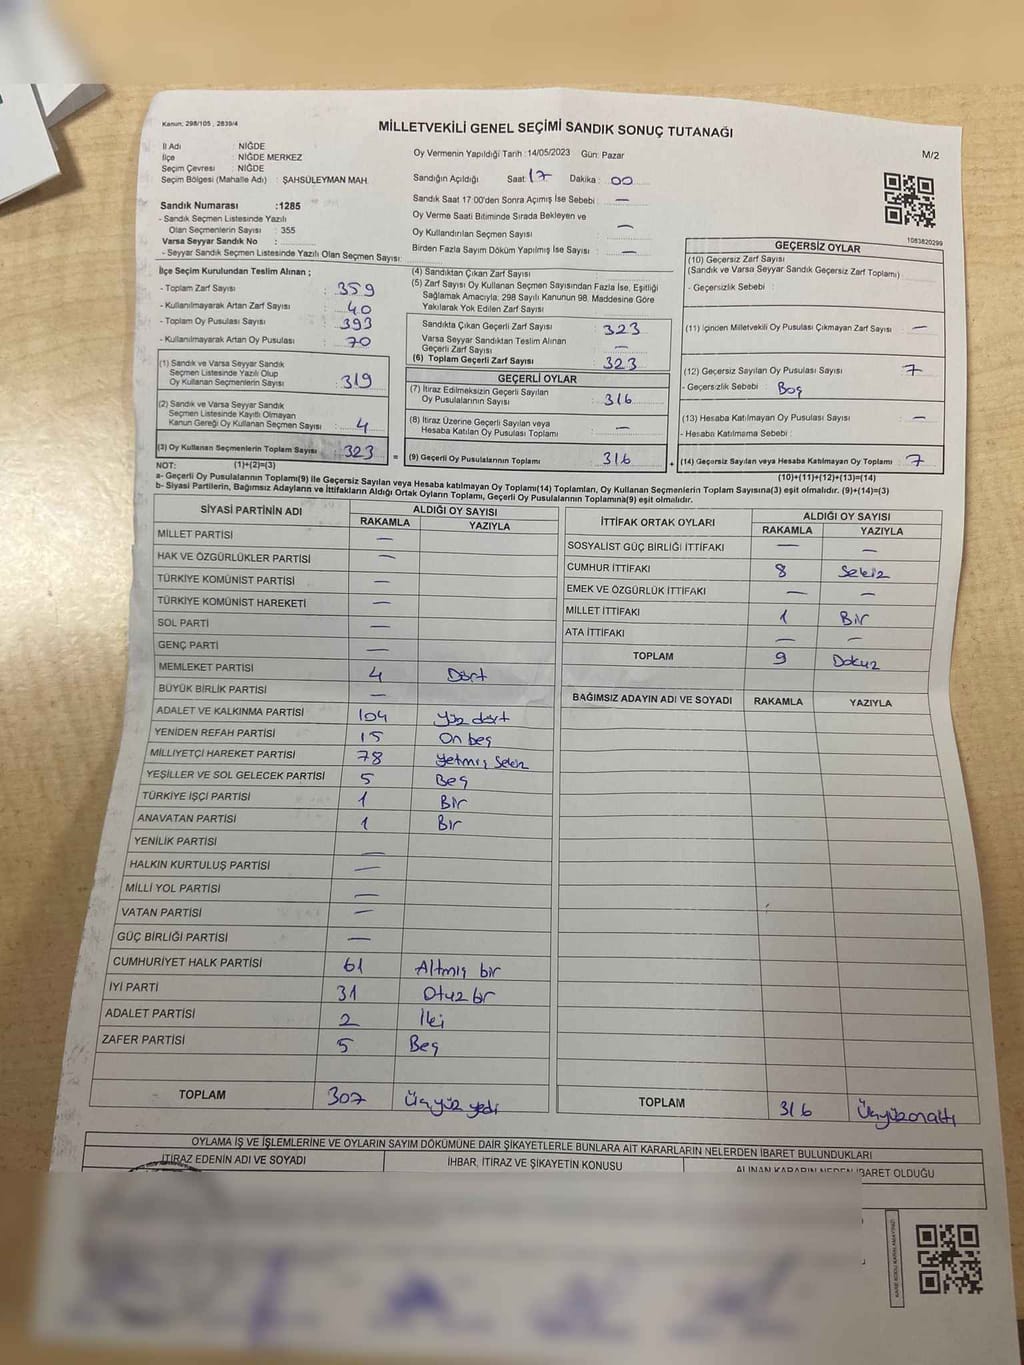 Kanun; 298/105 , 2839/4
MİLLETVEKİLİ GENEL SEÇİMİ SANDIK SONUÇ TUTANAĞI
M/2
İl Adı : NİĞDE
İlçe : NİĞDE MERKEZ
Seçim Çevresi : NİĞDE
Seçim Bölgesi (Mahalle Adı) : ŞAHSÜLEYMAN MAH.
Sandık Numarası :1285
- Sandık Seçmen Listesinde Yazılı
Olan Seçmenlerin Sayısı : 355
Varsa Seyyar Sandık No :
- Seyyar Sandık Listesinde Yazılı Olan Seçmen Sayısı:
Oy Vermenin Yapıldığı Tarih :14/05/2023 Gün: Pazar
Sandığın Açıldığı Saat: 17 Dakika : 00
Sandık Saat 17:00'den Sonra Açımış İse Sebebi : —
Oy Verme Saati Bitiminde Sırada Bekleyen ve
Oy Kullandırılan Seçmen Sayısı : —
Birden Fazla Sayım Döküm Yapılmış İse Sayısı : —
1083820299
İlçe Seçim Kurulundan Teslim Alınan ;
- Toplam Zarf Sayısı : 359
- Kullanılmayarak Artan Zarf Sayısı : 40
- Toplam Oy Pusulası Sayısı : 393
- Kullanılmayarak Artan Oy Pusulası : 70
(1) Sandık ve Varsa Seyyar Sandık
Seçmen Listesinde Yazılı Olup
Oy Kullanan Seçmenlerin Sayısı : 319
(2) Sandık ve Varsa Seyyar Sandık
Seçmen Listesinde Kayıtlı Olmayan
Kanun Gereği Oy Kullanan Seçmen Sayısı : 4
(3) Oy Kullanan Seçmenlerin Toplam Sayısı : 323 =
(1)+(2)=(3)
(4) Sandıktan Çıkan Zarf Sayısı :
(5) Zarf Sayısı Oy Kullanan Seçmen Sayısından Fazla İse, Eşitliği
Sağlamak Amacıyla; 298 Sayılı Kanunun 98. Maddesine Göre
Yakılarak Yok Edilen Zarf Sayısı :
Sandıkta Çıkan Geçerli Zarf Sayısı : 323
Varsa Seyyar Sandıktan Teslim Alınan
Geçerli Zarf Sayısı : —
(6) Toplam Geçerli Zarf Sayısı : 323
GEÇERLİ OYLAR
(7) İtiraz Edilmeksizin Geçerli Sayılan
Oy Pusulalarının Sayısı : 316
(8) İtiraz Üzerine Geçerli Sayılan veya
Hesaba Katılan Oy Pusulası Toplamı : —
(9) Geçerli Oy Pusulalarının Toplamı : 316 +
GEÇERSİZ OYLAR
(10) Geçersiz Zarf Sayısı
(Sandık ve Varsa Seyyar Sandık Geçersiz Zarf Toplamı)
- Geçersizlik Sebebi :
(11) İçinden Milletvekili Oy Pusulası Çıkmayan Zarf Sayısı : —
(12) Geçersiz Sayılan Oy Pusulası Sayısı : 7
- Geçersizlik Sebebi : Boş
(13) Hesaba Katılmayan Oy Pusulası Sayısı : —
- Hesaba Katılmama Sebebi :
(14) Geçersiz Sayılan veya Hesaba Katılmayan Oy Toplamı : 7
(10)+(11)+(12)+(13)=(14)
NOT:
a- Geçerli Oy Pusulalarının Toplamı(9) ile Geçersiz Sayılan veya Hesaba Katılmayan Oy Toplamı(14) Toplamları, Oy Kullanan Seçmenlerin Toplam Sayısına(3) eşit olmalıdır. (9)+(14)=(3)
b- Siyasi Partilerin, Bağımsız Adayların ve İttifakların Aldığı Ortak Oyların Toplamı, Geçerli Oy Pusulalarının Toplamına(9) eşit olmalıdır.
SİYASİ PARTİNİN ADI ALDIĞI OY SAYISI
RAKAMLA YAZIYLA
MİLLET PARTİSİ —
HAK VE ÖZGÜRLÜKLER PARTİSİ —
TÜRKİYE KOMÜNİST PARTİSİ —
TÜRKİYE KOMÜNİST HAREKETİ —
SOL PARTİ —
GENÇ PARTİ —
MEMLEKET PARTİSİ 4 Dört
BÜYÜK BİRLİK PARTİSİ —
ADALET VE KALKINMA PARTİSİ 104 Yüz dört
YENİDEN REFAH PARTİSİ 15 On beş
MİLLİYETÇİ HAREKET PARTİSİ 78 Yetmiş Sekiz
YEŞİLLER VE SOL GELECEK PARTİSİ 5 Beş
TÜRKİYE İŞÇİ PARTİSİ 1 Bir
ANAVATAN PARTİSİ 1 Bir
YENİLİK PARTİSİ —
HALKIN KURTULUŞ PARTİSİ —
MİLLİ YOL PARTİSİ —
VATAN PARTİSİ —
GÜÇ BİRLİĞİ PARTİSİ —
CUMHURİYET HALK PARTİSİ 61 Altmış bir
İYİ PARTİ 31 Otuz bir
ADALET PARTİSİ 2 İki
ZAFER PARTİSİ 5 Beş
TOPLAM 307 Üçyüz yedi
İTTİFAK ORTAK OYLARI ALDIĞI OY SAYISI
RAKAMLA YAZIYLA
SOSYALİST GÜÇ BİRLİĞİ İTTİFAKI — —
CUMHUR İTTİFAKI 8 Sekiz
EMEK VE ÖZGÜRLÜK İTTİFAKI — —
MİLLET İTTİFAKI 1 Bir
ATA İTTİFAKI — —
TOPLAM 9 Dokuz
BAĞIMSIZ ADAYIN ADI VE SOYADI RAKAMLA YAZIYLA
TOPLAM 316 Üçyüzonaltı
OYLAMA İŞ VE İŞLEMLERİNE VE OYLARIN SAYIM DÖKÜMÜNE DAİR ŞİKAYETLERLE BUNLARA AİT KARARLARIN NELERDEN İBARET BULUNDUKLARI
İTİRAZ EDENİN ADI VE SOYADI İHBAR, İTİRAZ VE ŞİKAYETİN KONUSU ALINAN KARARIN NEDEN İBARET OLDUĞU